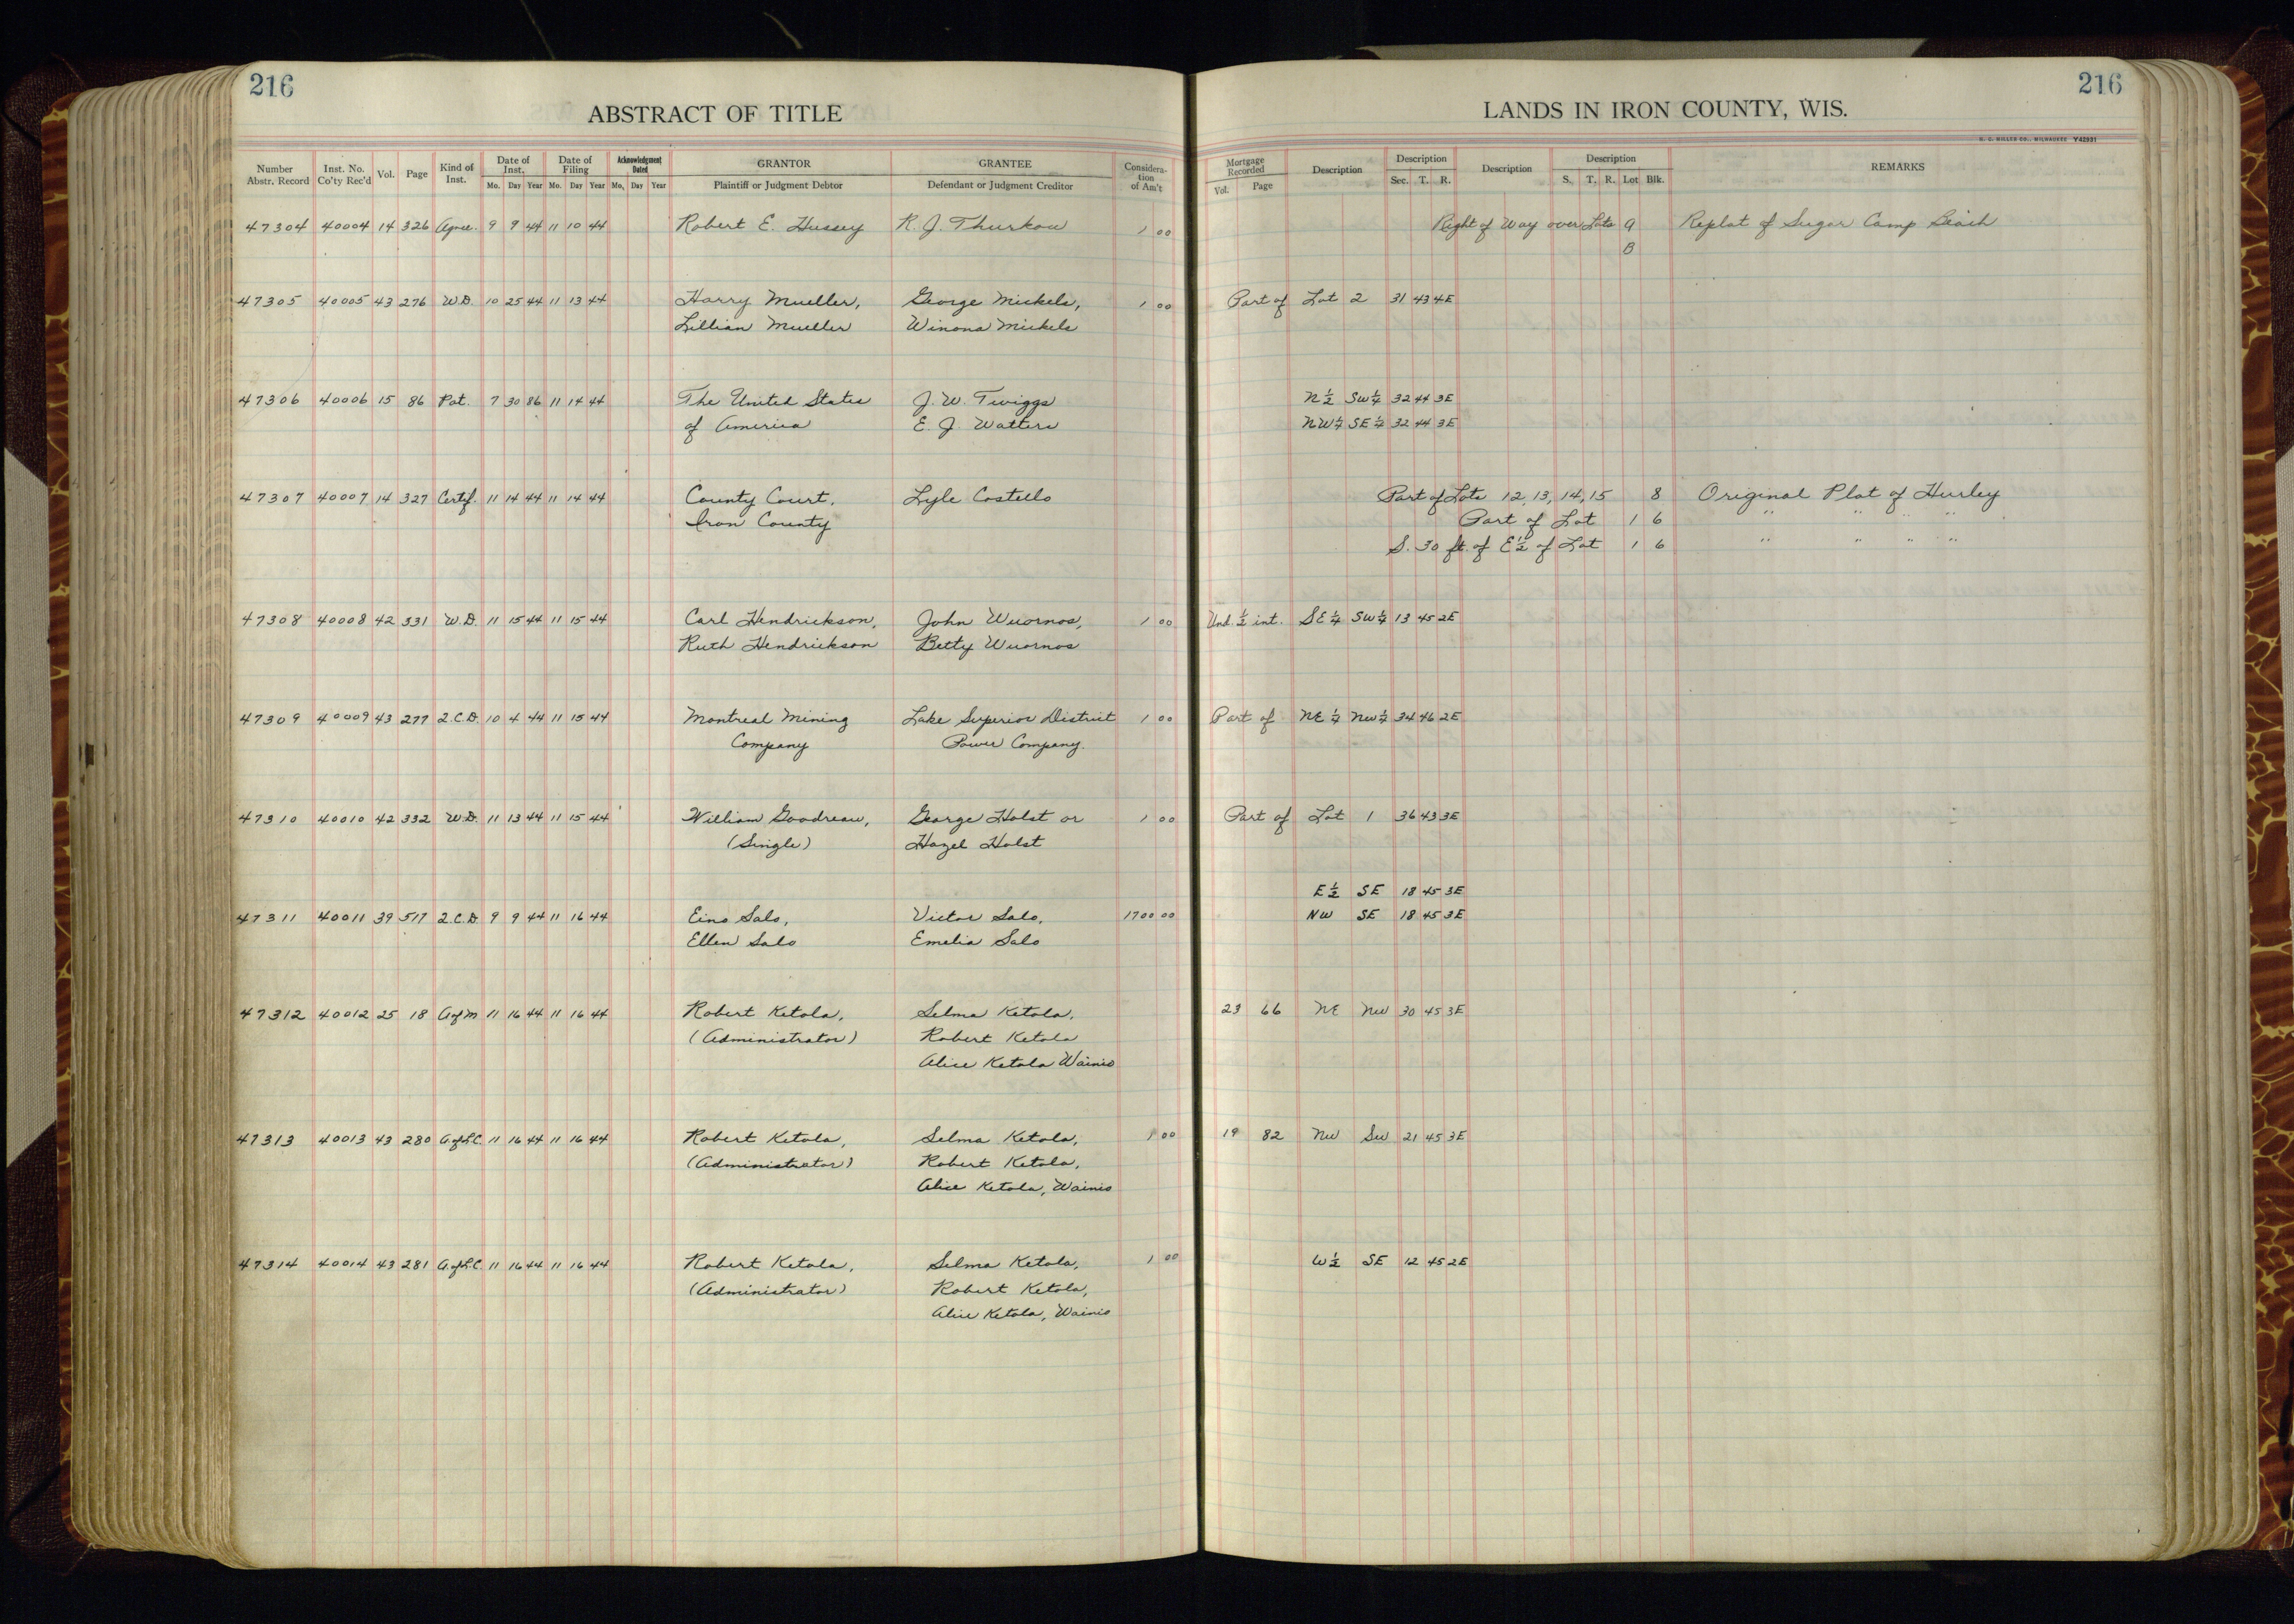 216 216
ABSTRACT OF TITLE LANDS IN IRON COUNTY, WIS.
H. C. MILLER CO., MILWAUKEE Y42931
Number Abstr. Record Inst. No. Co'ty Rec'd Vol. Page Kind of Inst. Date of Inst. Date of Filing Acknowledgment Dated GRANTOR GRANTEE Considera-tion of Am't Mortgage Recorded Description Description Description Description REMARKS
Mo. Day Year Mo. Day Year Mo. Day Year Plaintiff or Judgment Debtor Defendant or Judgment Creditor Vol. Page Sec. T. R. S. T. R. Lot Blk.
47304 40004 14 326 Agree. 9 9 44 11 10 44 Robert E. Hussey R. J. Thurkow 1 00 Right of Way over Lots A Replat of Sugar Camp Beach
B
47305 40005 43 276 W.D. 10 25 44 11 13 44 Harry Mueller, George Mickels, 1 00 Part of Lot 2 31 43 4E
Lillian Mueller Winona Mickels
47306 40006 15 86 Pat. 7 30 86 11 14 44 The United States J. W. Twiggs N 1/2 SW 1/4 32 44 3E
of America E. J. Watters NW 1/4 SE 1/4 32 44 3E
47307 40007 14 327 Certif. 11 14 44 11 14 44 County Court, Lyle Costello Part of Lots 12, 13, 14, 15 8 Original Plat of Hurley
Iron County Part of Lot 1 6 " " " "
S. 30 ft. of E 1/2 of Lot 1 6 " " " "
47308 40008 42 331 W.D. 11 15 44 11 15 44 Carl Hendrickson, John Wuornos, 1 00 Und. 1/2 int. SE 1/4 SW 1/4 13 45 2E
Ruth Hendrickson Betty Wuornos
47309 40009 43 277 2.C.D. 10 4 44 11 15 44 Montreal Mining Lake Superior District 1 00 Part of NE 1/4 NW 1/4 34 46 2E
Company Power Company.
47310 40010 42 332 W.D. 11 13 44 11 15 44 William Goodreau, George Holst or 1 00 Part of Lot 1 36 43 3E
(Single) Hazel Holst
E 1/2 SE 18 45 3E
47311 40011 39 517 2.C.D. 9 9 44 11 16 44 Eino Salo, Victor Salo, 1700 00 NW SE 18 45 3E
Ellen Salo Emelia Salo
47312 40012 25 18 A of M 11 16 44 11 16 44 Robert Ketola, Selma Ketola, 23 66 NE NW 30 45 3E
(Administrator) Robert Ketola
Alice Ketola Wainio
47313 40013 43 280 A. of L.C. 11 16 44 11 16 44 Robert Ketola, Selma Ketola, 1 00 19 82 NW SW 21 45 3E
(Administrator) Robert Ketola,
Alice Ketola, Wainio
47314 40014 43 281 A. of L.C. 11 16 44 11 16 44 Robert Ketola, Selma Ketola, 1 00 W 1/2 SE 12 45 2E
(Administrator) Robert Ketola,
Alice Ketola, Wainio